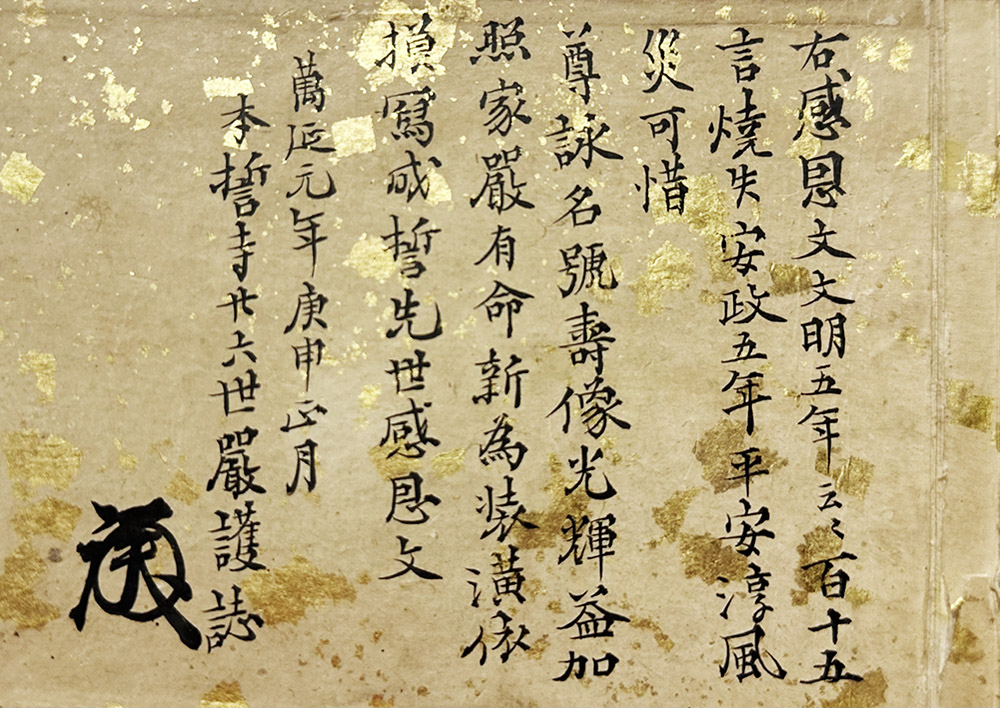 右感恩文文明五年云〻百十五
言燒失安政五年平安淳風
災可惜
尊詠名號壽像光輝益加
照家嚴有命新為装潢依
損寫成誓先世感恩文
萬延元年庚申正月
本誓寺廿六世嚴護誌